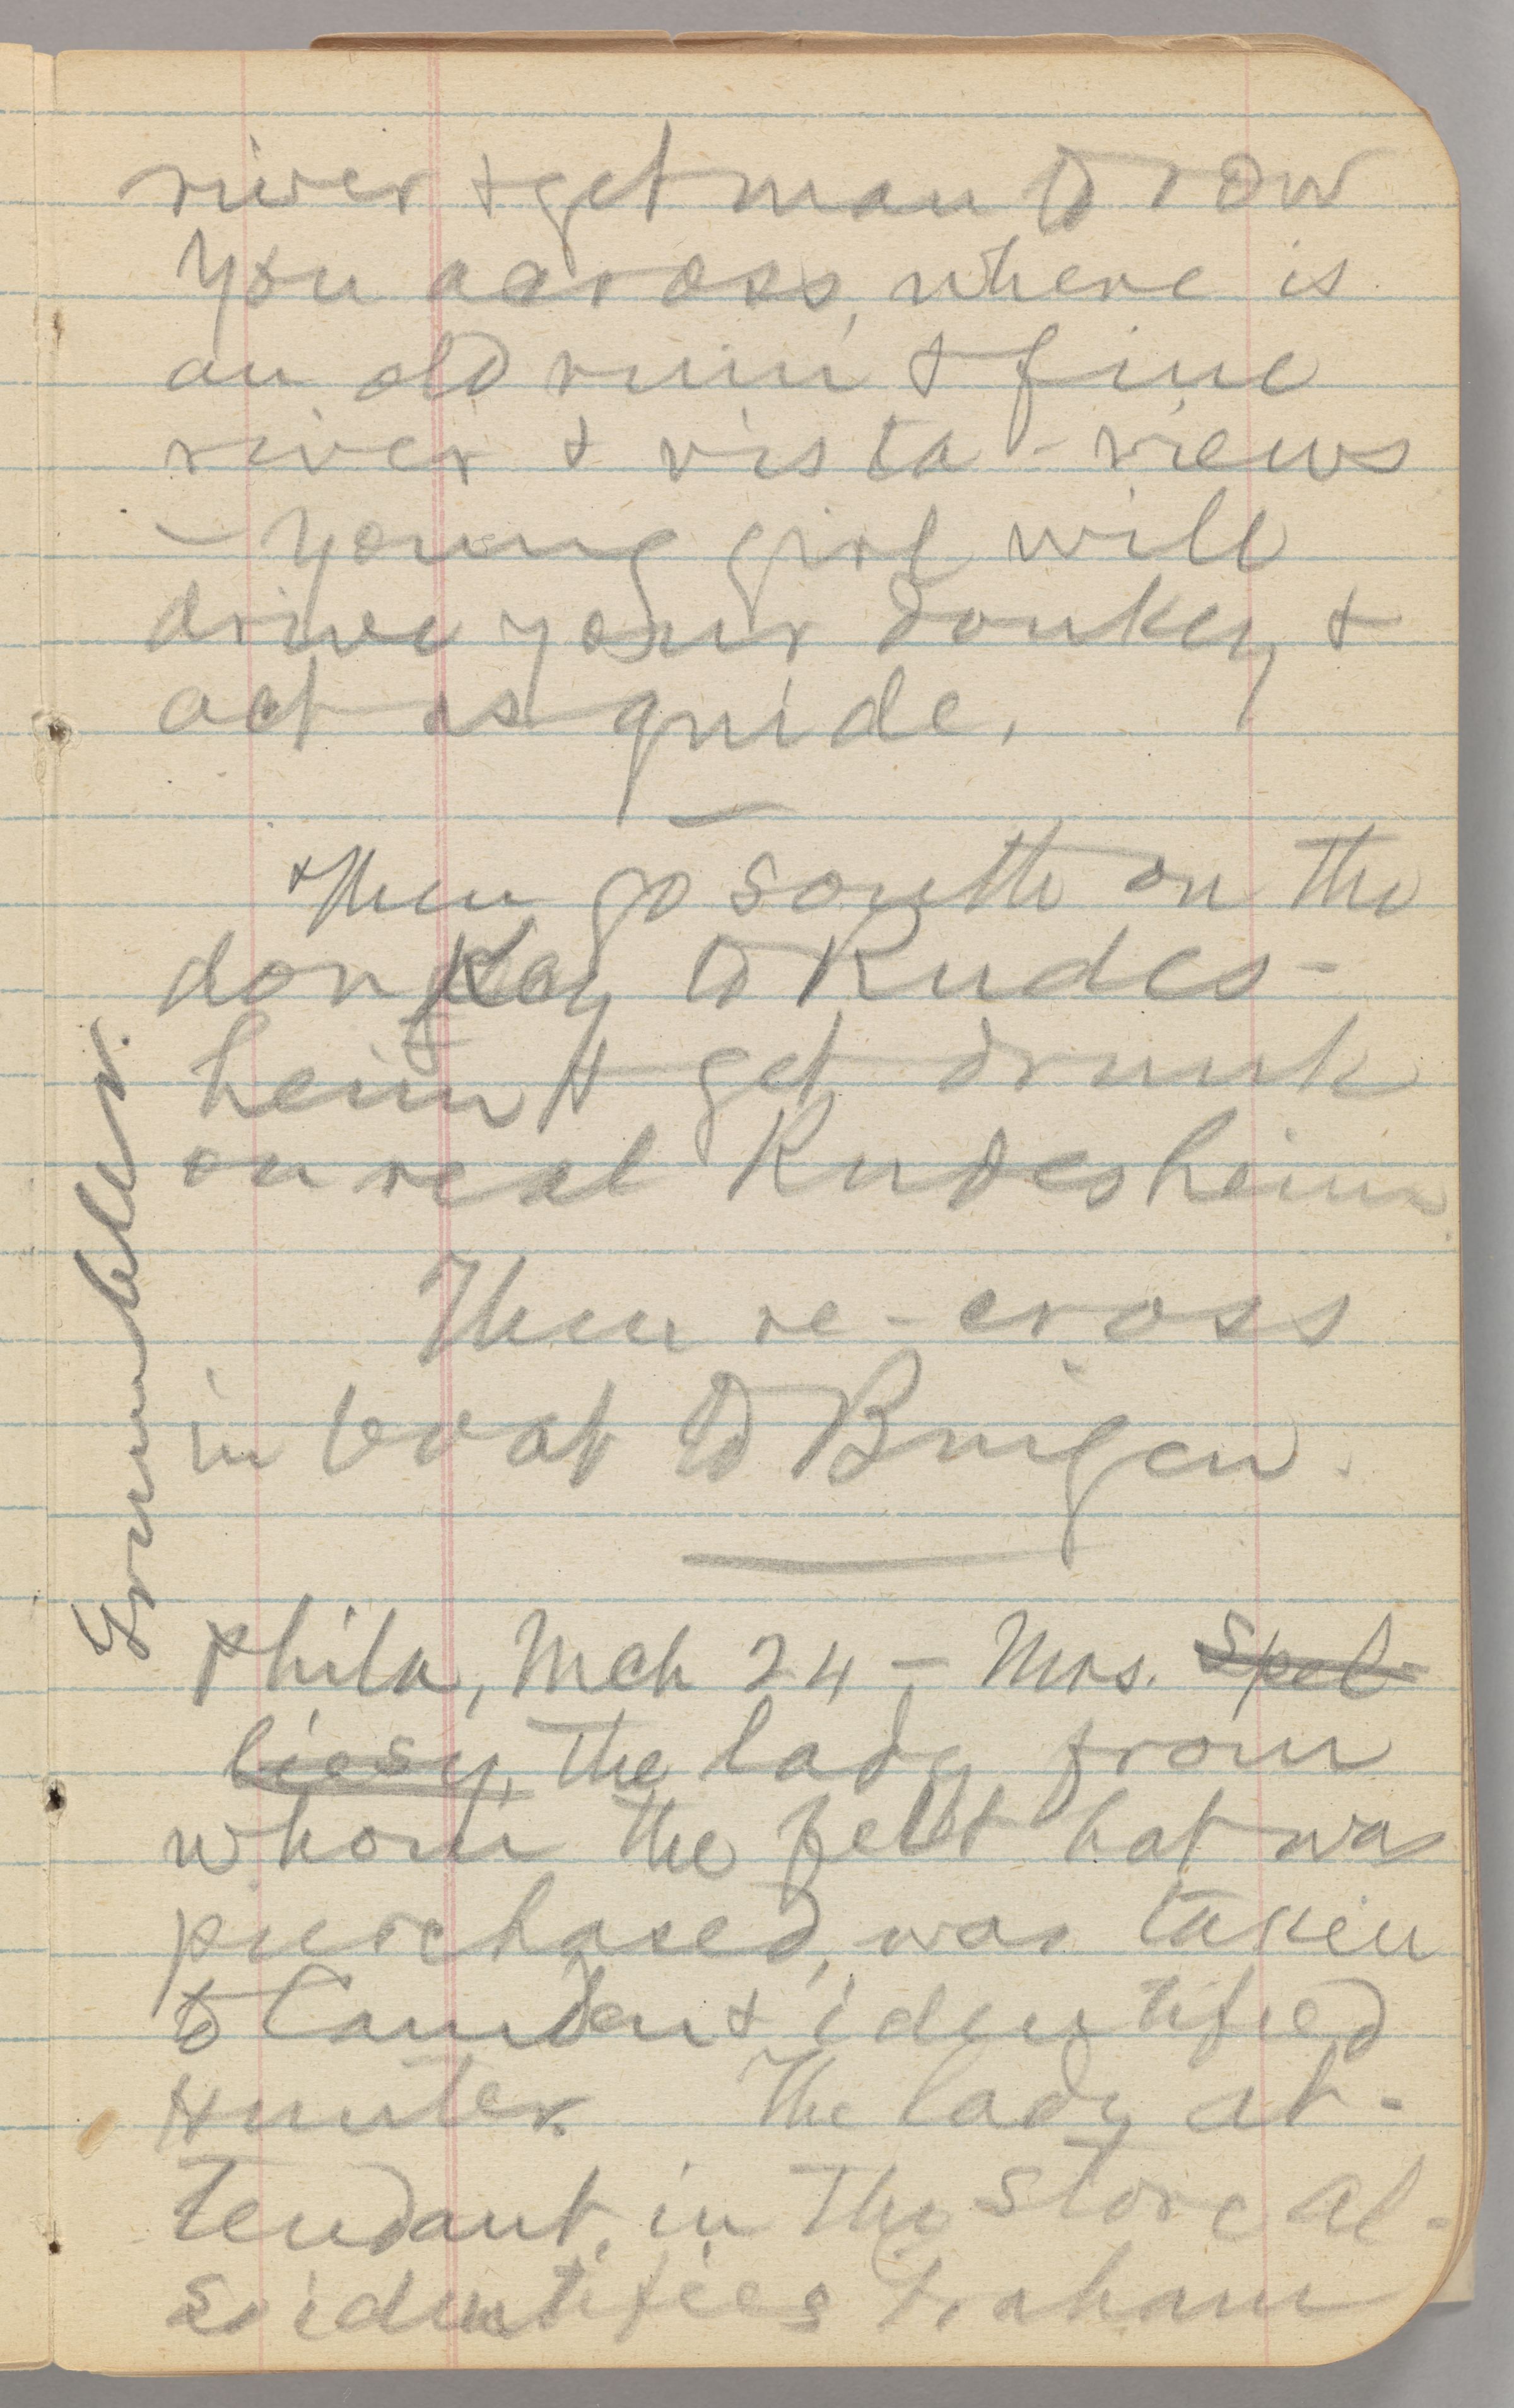 river + get man to row
you across, where is
an old ruin & fine
river & vista-views
– young girl will
drive your donkey &
act as guide.
Then go south on the
donkey to Rudes-
heim & get drunk
on real Rudesheim
Then re-cross
in boat to Bingen.
Grumbler.
Phila, Mch 24 – Mrs. Spel-
liesy, the lady from
whom the felt hat was
purchased, was taken
to Camden & identified
Hunter. The lady at-
tendant, in the store al-
so identifies Graham